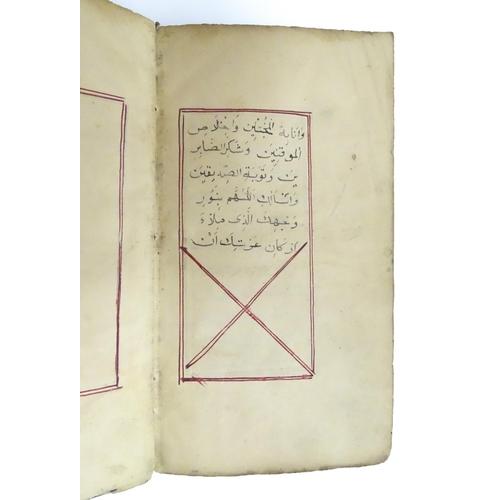 وانابة المخبتين واخلاص
الموقنين وشكر الصابر
ين وتوبة الصديقين
واسألك اللهم بنور
وجهك الذى ملاء
اركان عرشك ان